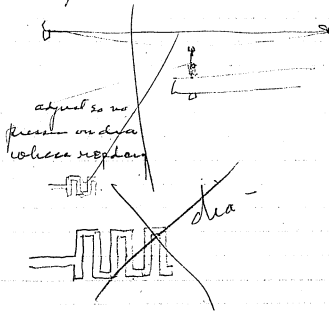 adjust so no
pressure on dia
when reading
dia -